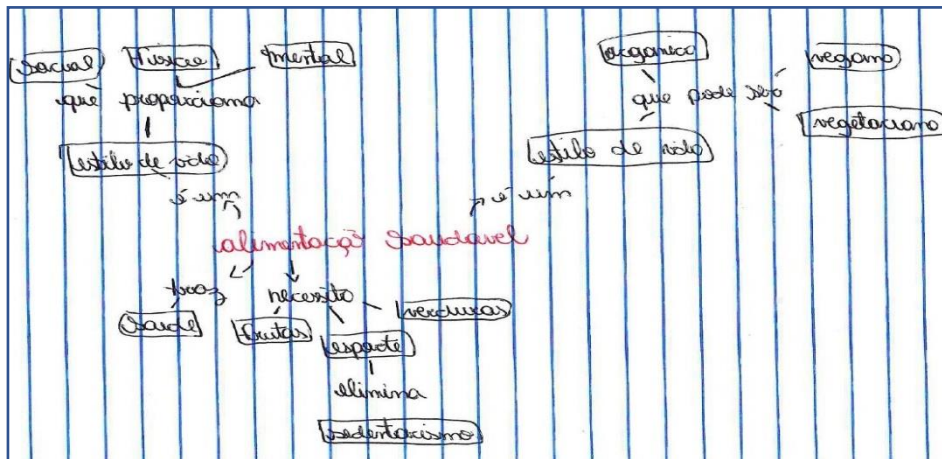 Social Física mental
que proporciona
estilo de vida
é um
orgânico vegano
que pode ser
vegetariano
estilo de vida
é um
alimentaçã Saudavel
traz necessita
Saude frutas verduras
esporte
elimina
sedentarismo